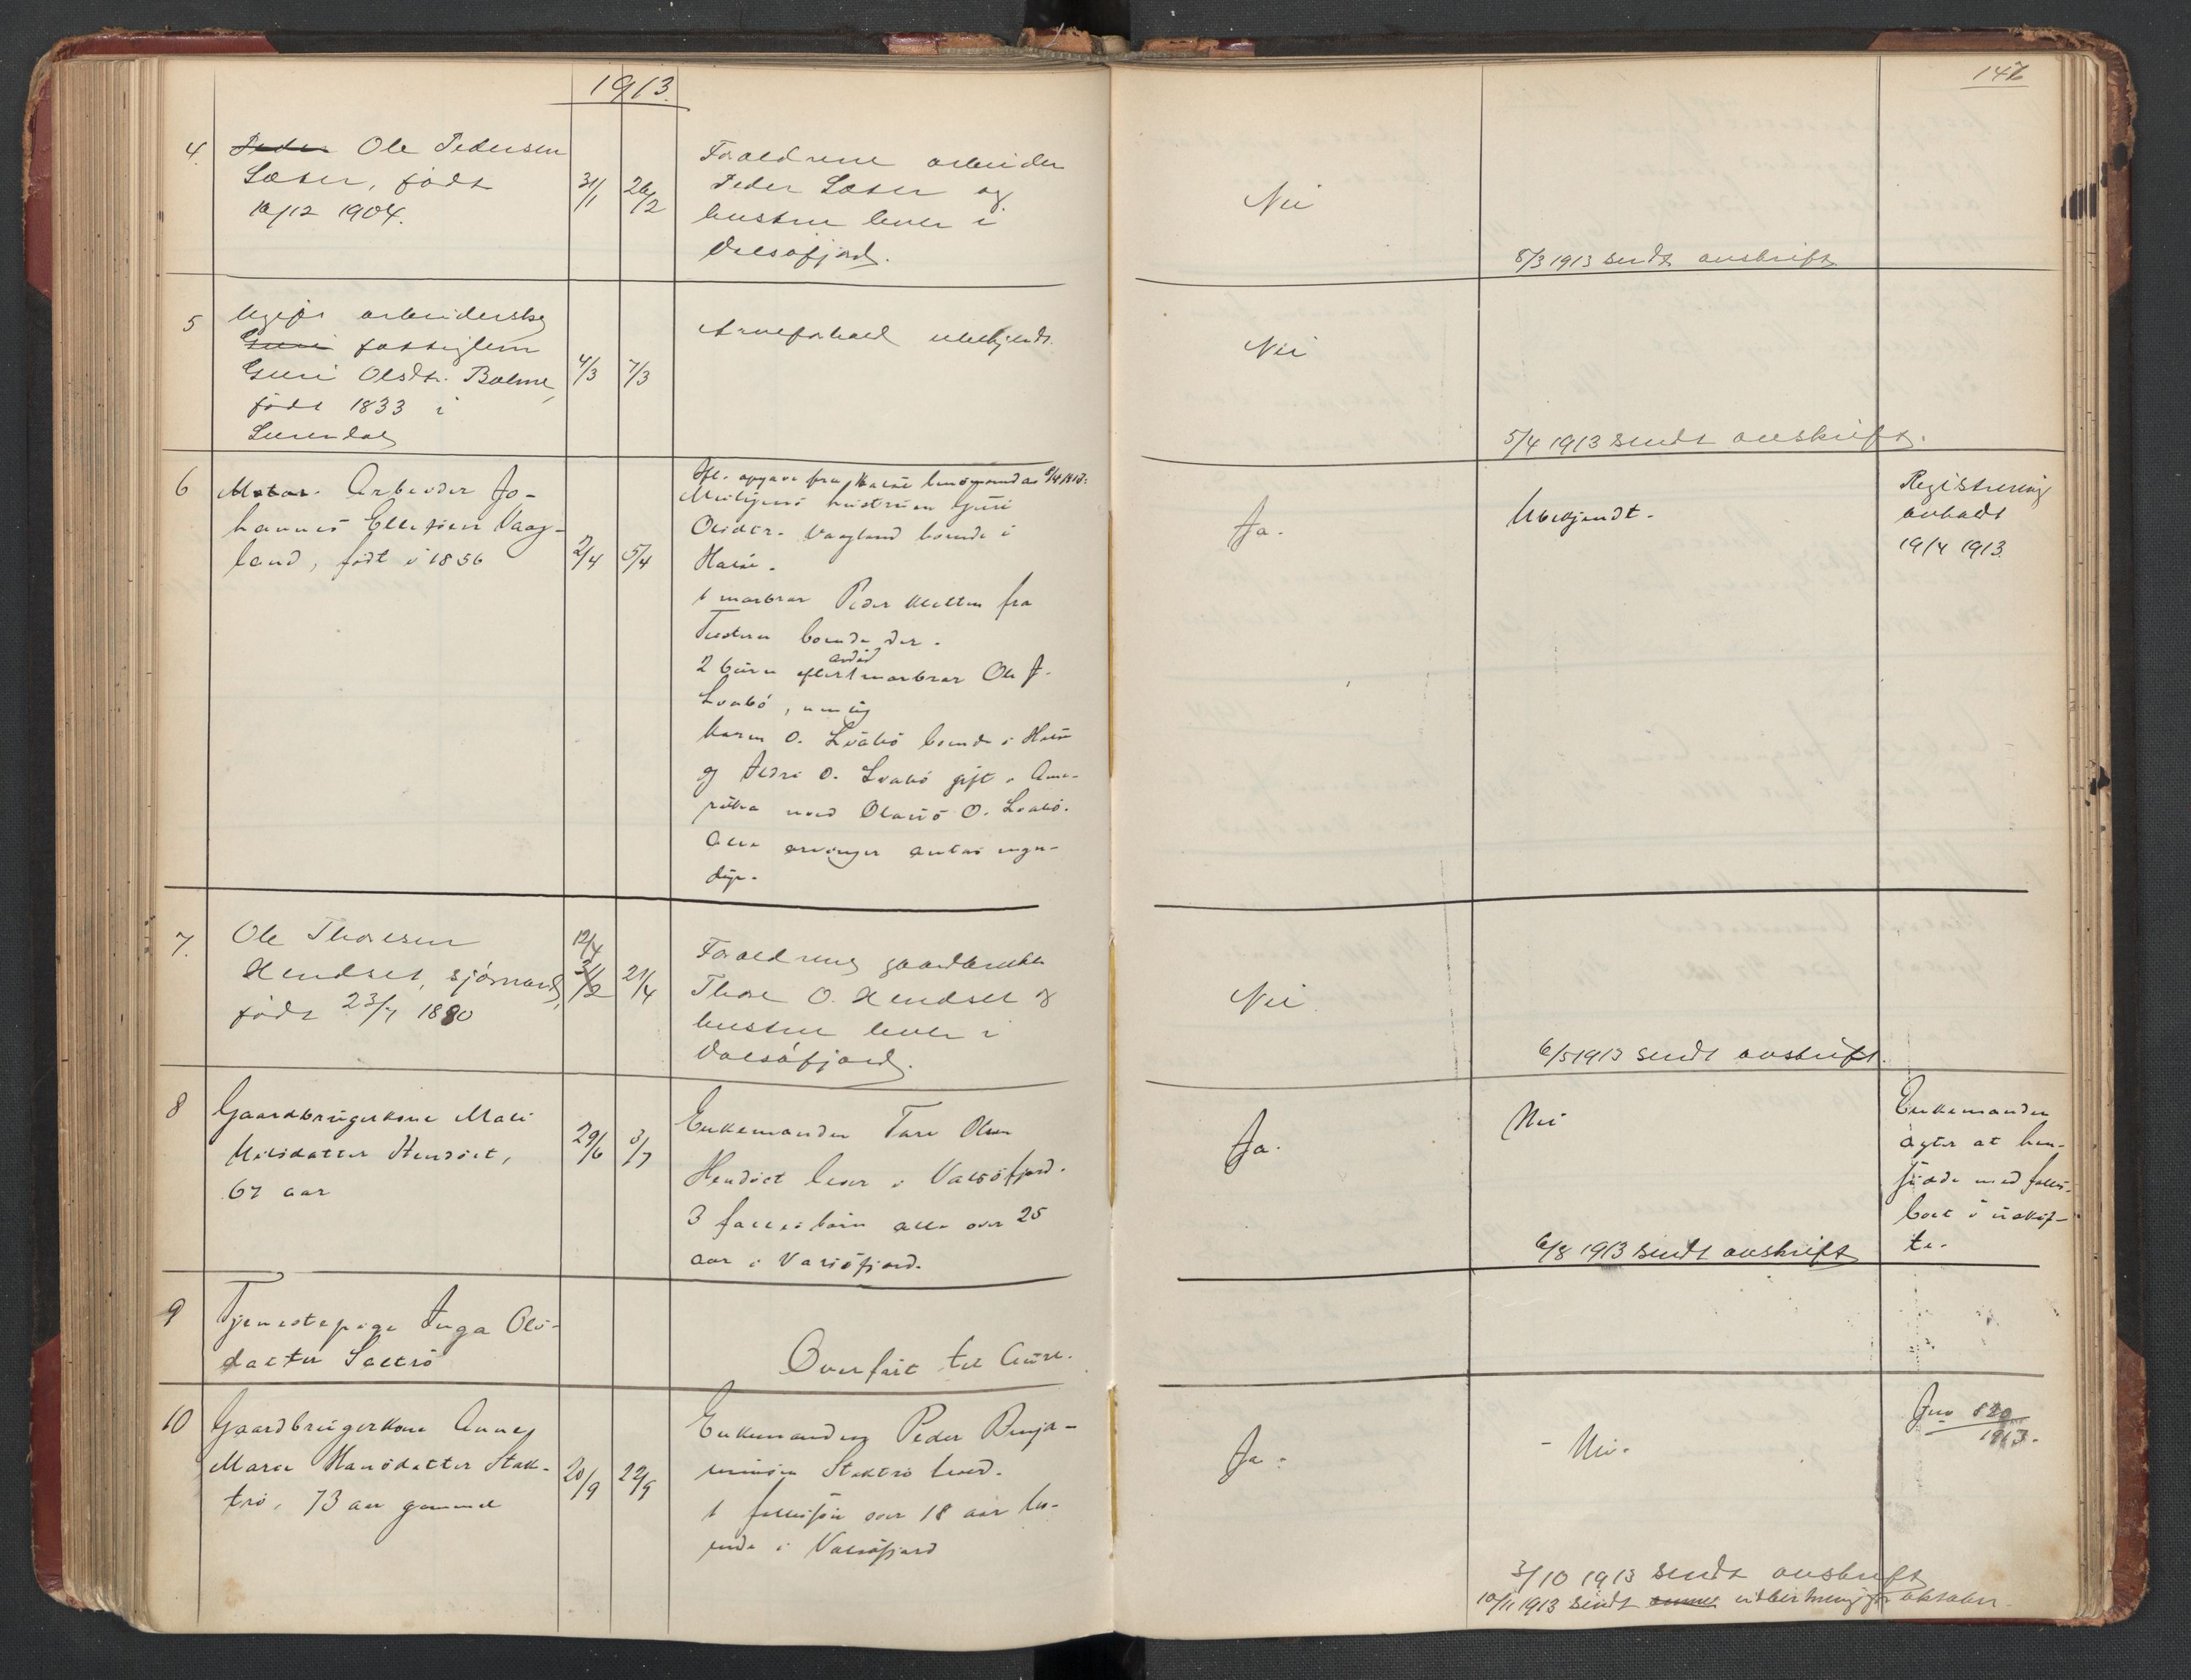 1913.
147
4.
Peder Ole Pedersen
Sæter, født
10/12 1904.
31/1
26/2
Forældrene arbeider
Peder Sæter og
hustru lever i
Valsøfjord.
Nei
8/3 1913 sendt avskrift
5
Ugift arbeiderske
Guri fattiglem
Guri Olsdtr. Bolme,
født 1833 i
Surendal
4/3
7/3
Arveforhold ubekjendt.
Nei
5/4 1913 sendt avskrift.
6
Arbeider Jo-
hannes Ellefsen Vaag-
land, født i 1856
2/4
5/4
Ifl. opgave fra Halse lensmand
hustruen Guri
Olsdtr. Vaagland boende i
Halse.
1 morbror Peder fra
Tustern boende der.
2 børn efter avdød morbror Ole J.
Lervaag, nemlig
Karen O. boende i Halse
og O. gift i Ame-
rika med O.
Alle arvinger antas myn-
dige.
Ja.
Ubekjendt.
Registrering
avholdt
19/4 1913
7.
Ole Thoresen
Hendset, sjømand,
født 23/7 1880
12/4
21/4
Forældrene gaardbruker
Thore O. Hendset og
hustru lever i
Valsøfjord.
Nei
6/5 1913 sendt avskrift.
8
Gaardbrugerkone Mali
Nilsdatter Hendset,
67 aar
29/6
3/7
Enkemanden Tore Olsen
Hendset lever i Valsøfjord.
3 fællesbørn alle over 25
aar i Valsøfjord.
Ja.
Nei
6/8 1913 sendt avskrift
Enkemanden
agter at hen-
sidde med fælles-
boet i uskif-
te.
9
Tjenestepige Inga Ols-
datter
Overført til Aure.
10
Gaardbrugerkone Anne
Marie Hansdatter
73 aar gammel
20/9
22/9
Enkemanden Peder Benja-
minsen lever.
1 fællessøn over 18 aar bo-
ende i Valsøfjord
Ja.
- Nei.
Jno 820
1913.
3/10 1913 sendt avskrift
10/11 1913 sendt indberetning for oktober.